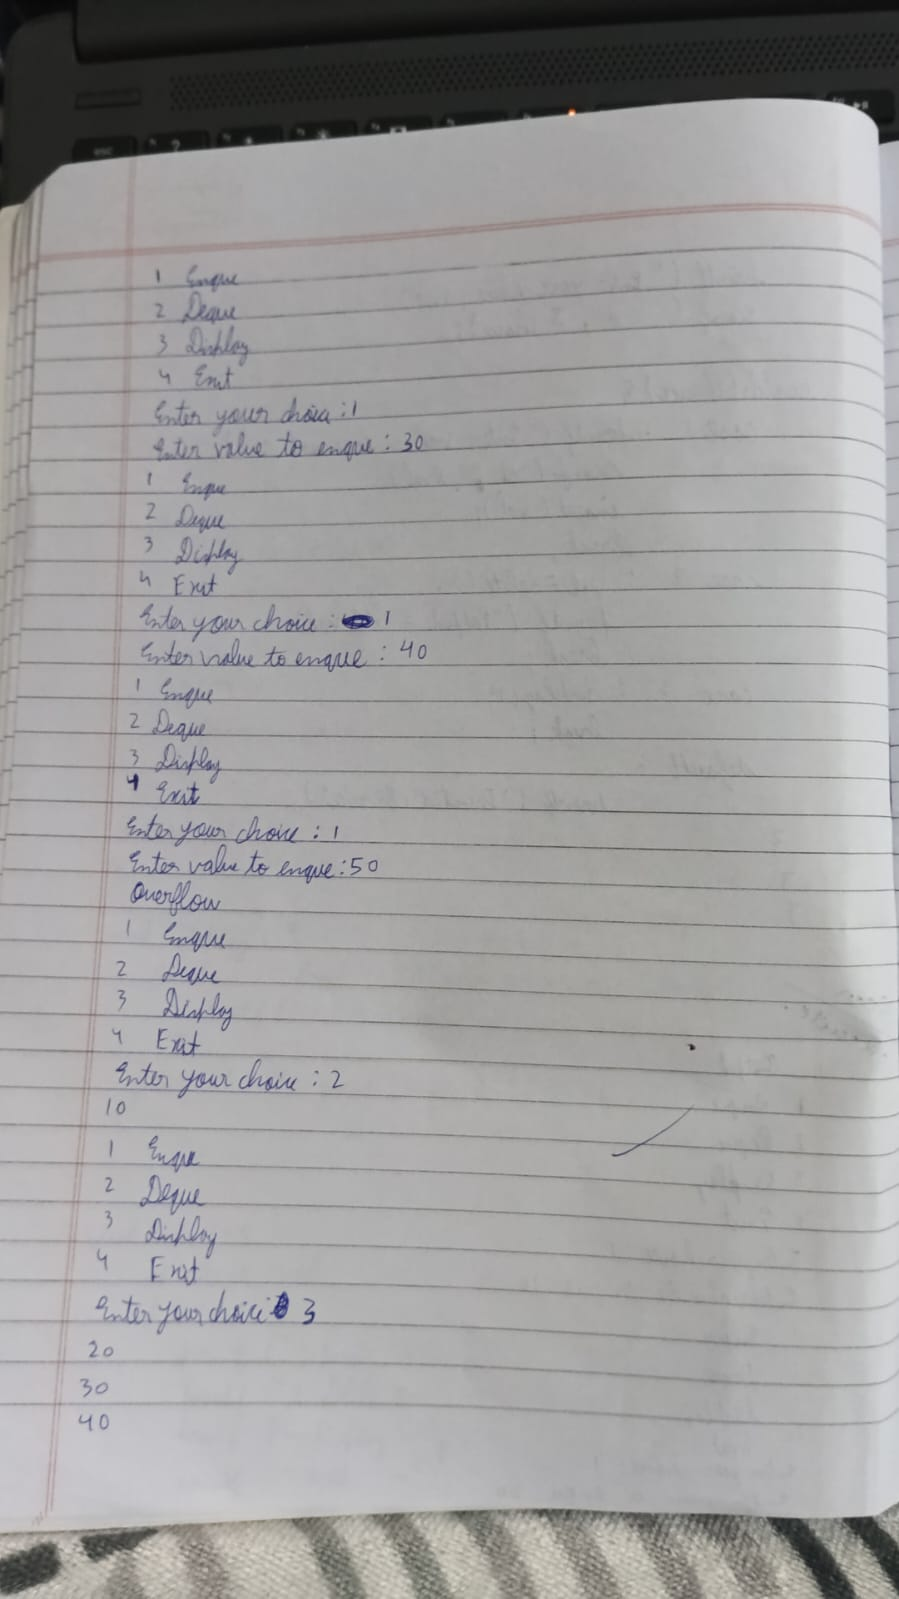 1 Enque
2 Deque
3 Display
4 Exit
Enter your choice : 1
Enter value to enque : 30
1 Enque
2 Deque
3 Display
4 Exit
Enter your choice : 1
Enter value to enque : 40
1 Enque
2 Deque
3 Display
4 Exit
Enter your choice : 1
Enter value to enque : 50
Overflow
1 Enque
2 Deque
3 Display
4 Exit
Enter your choice : 2
10
1 Enque
2 Deque
3 Display
4 Exit
Enter your choice 3
20
30
40